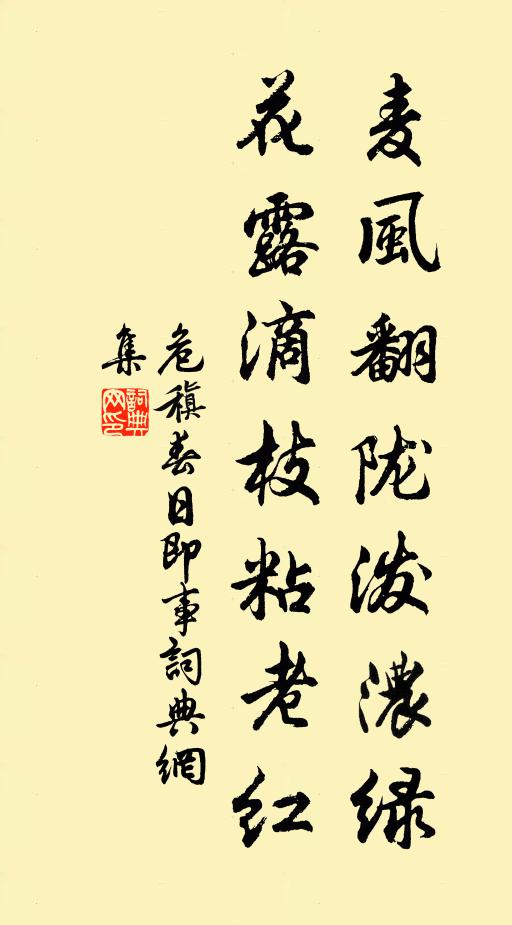 麦風翻陇泼濃绿
花露滴枝粘老红
危稹春日即事詞典網
集
詞典网印